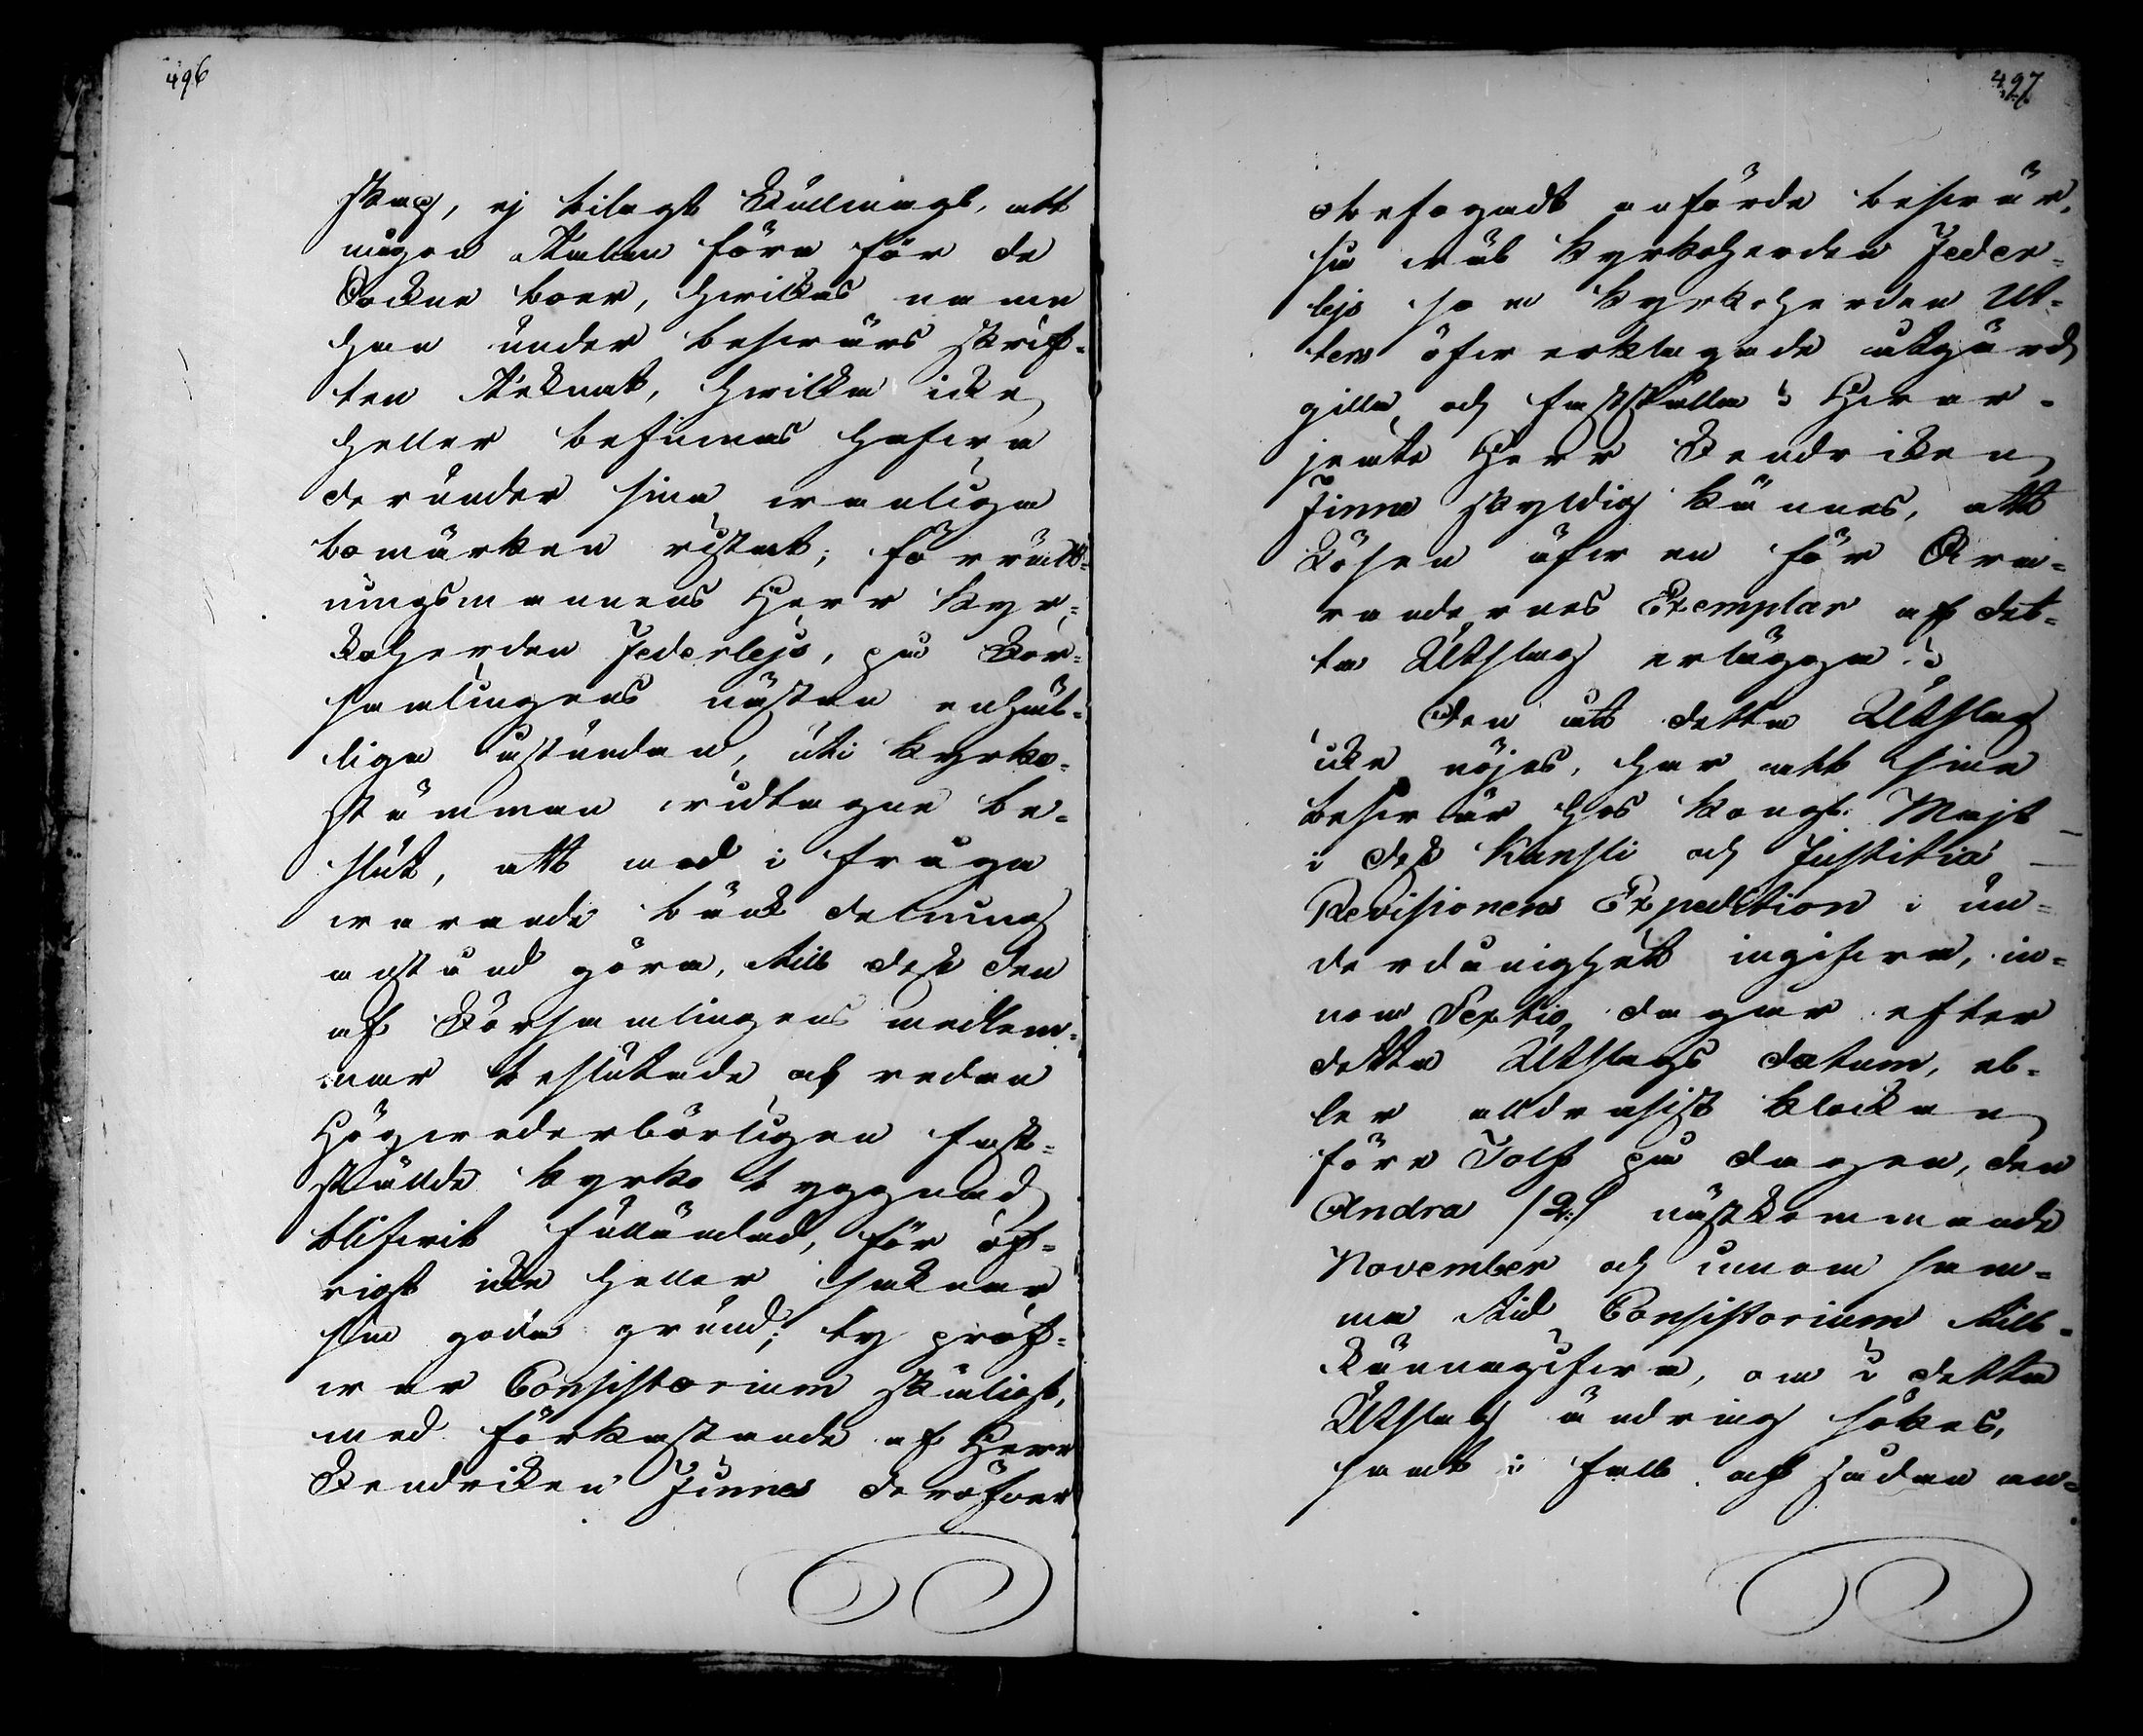 496
skap, ej bilagt Fullmagt, att
någon talan föra för de
Sockne boer, hwilkas namn
han under beswärs skrif-
ten teknat, hwilka icke
heller befinnas hafwa
derunder sina wanliga
bomärken ristat; förrätt-
ningsmannens Herr Kyr-
koherden Federlejs, på För-
samlingens nästan enhäl-
liga åstundan, uti Kyrko-
stämman widtagne be-
slut, att med i fråga
warande bänk delning
anstånd göra, till dess den
af Församlingens medlem-
mar beslutade och redan
Högwederbörligen fast-
ställde kyrko byggnad
blifwit fulländad, för öf-
rigt icke heller saknar
sin goda grund; ty pröf-
war Consistorium skäligt,
med förkastande af Herr
Fendriken Finnes deröfwer
497
obefogadt anförde beswär,
så wäl Kyrkoherden Feder-
lejs som Kyrkoherden Ut-
ters öfwerklagade åtgärd
gilla och fastställa; Hwar-
jemte Herr Fendriken
Finne skyldig kännes, att
Lösen äfwen för Swa-
randernes Exemplar af det-
ta Utslag erlägga.
Den åt detta Utslag
icke nöjes, har att sina
beswär hos Kongl. Majt
i dess Kansli och Justitiæ
Revisionens Expedition i un-
derdånighet ingifwa, in-
nom Sextio dagar efter
detta Utslags datum, el-
ler alldrasist klockan
före Tolf på dagen, den
Andra /2:/ nästkommande
November och innom sam-
ma tid Consistorium till-
kännagifwa, om i detta
Utslag ändring sökes,
samt i fall af sådan an-